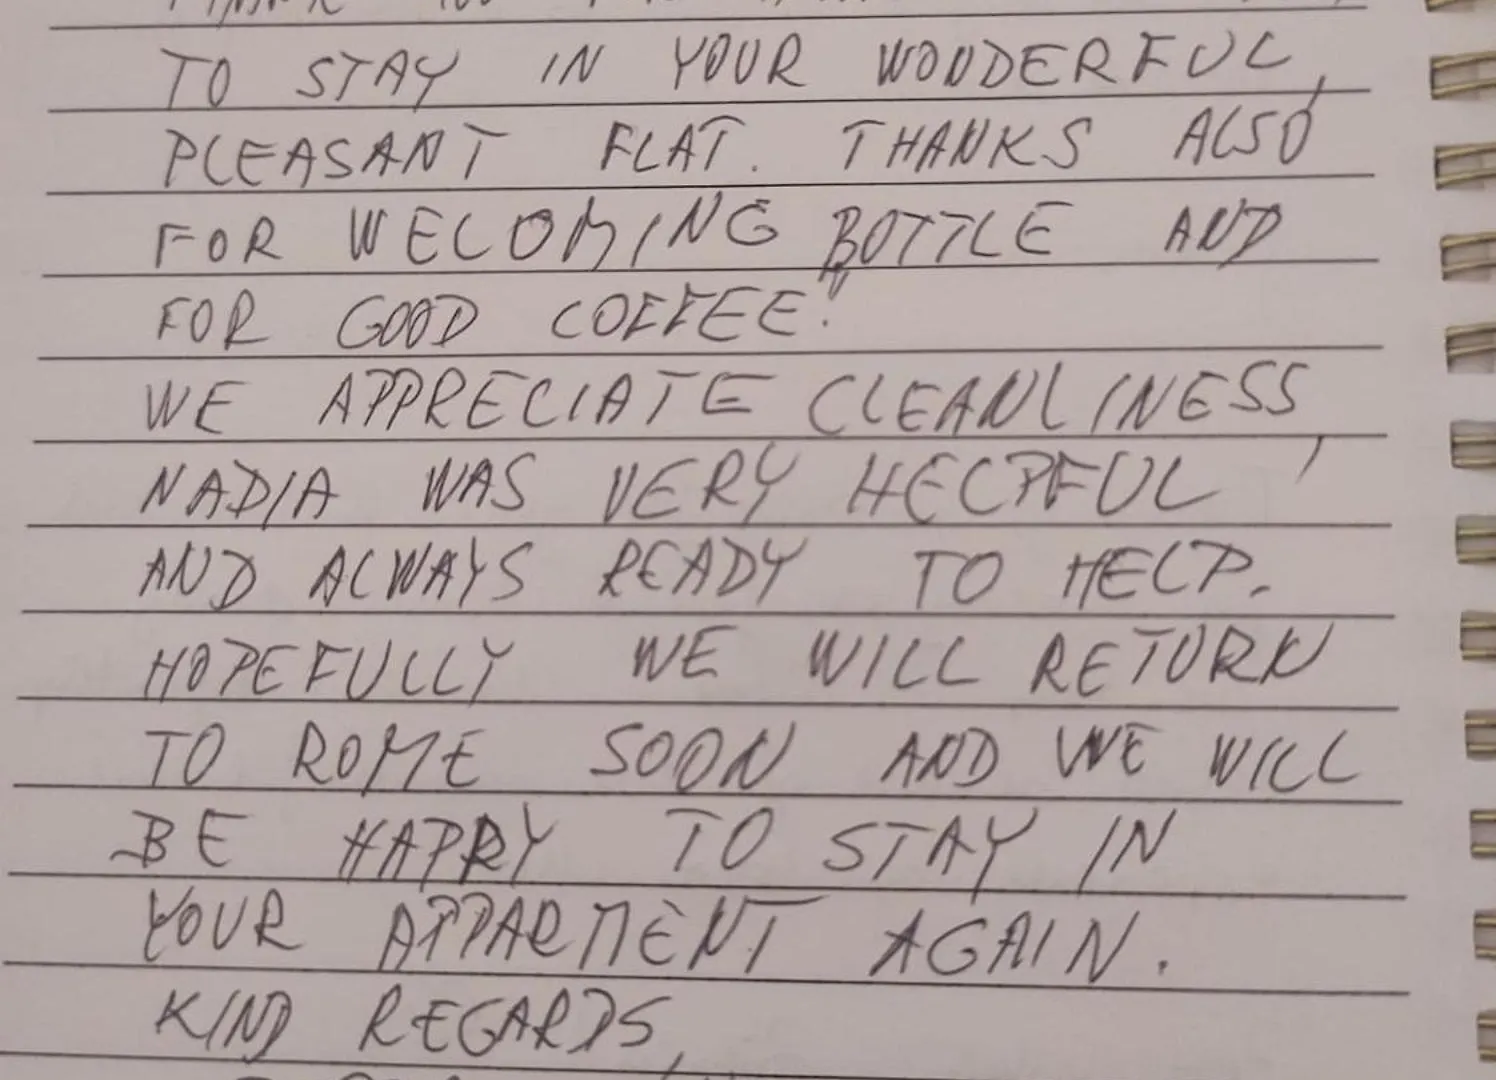 TO STAY IN YOUR WONDERFUL,
PLEASANT FLAT. THANKS ALSO
FOR WELCOMING BOTTLE AND
FOR GOOD COFFEE!
WE APPRECIATE CLEANLINESS,
NADIA WAS VERY HELPFUL
AND ALWAYS READY TO HELP.
HOPEFULLY WE WILL RETURN
TO ROME SOON AND WE WILL
BE HAPPY TO STAY IN
YOUR APPARMENT AGAIN.
KIND REGARDS,